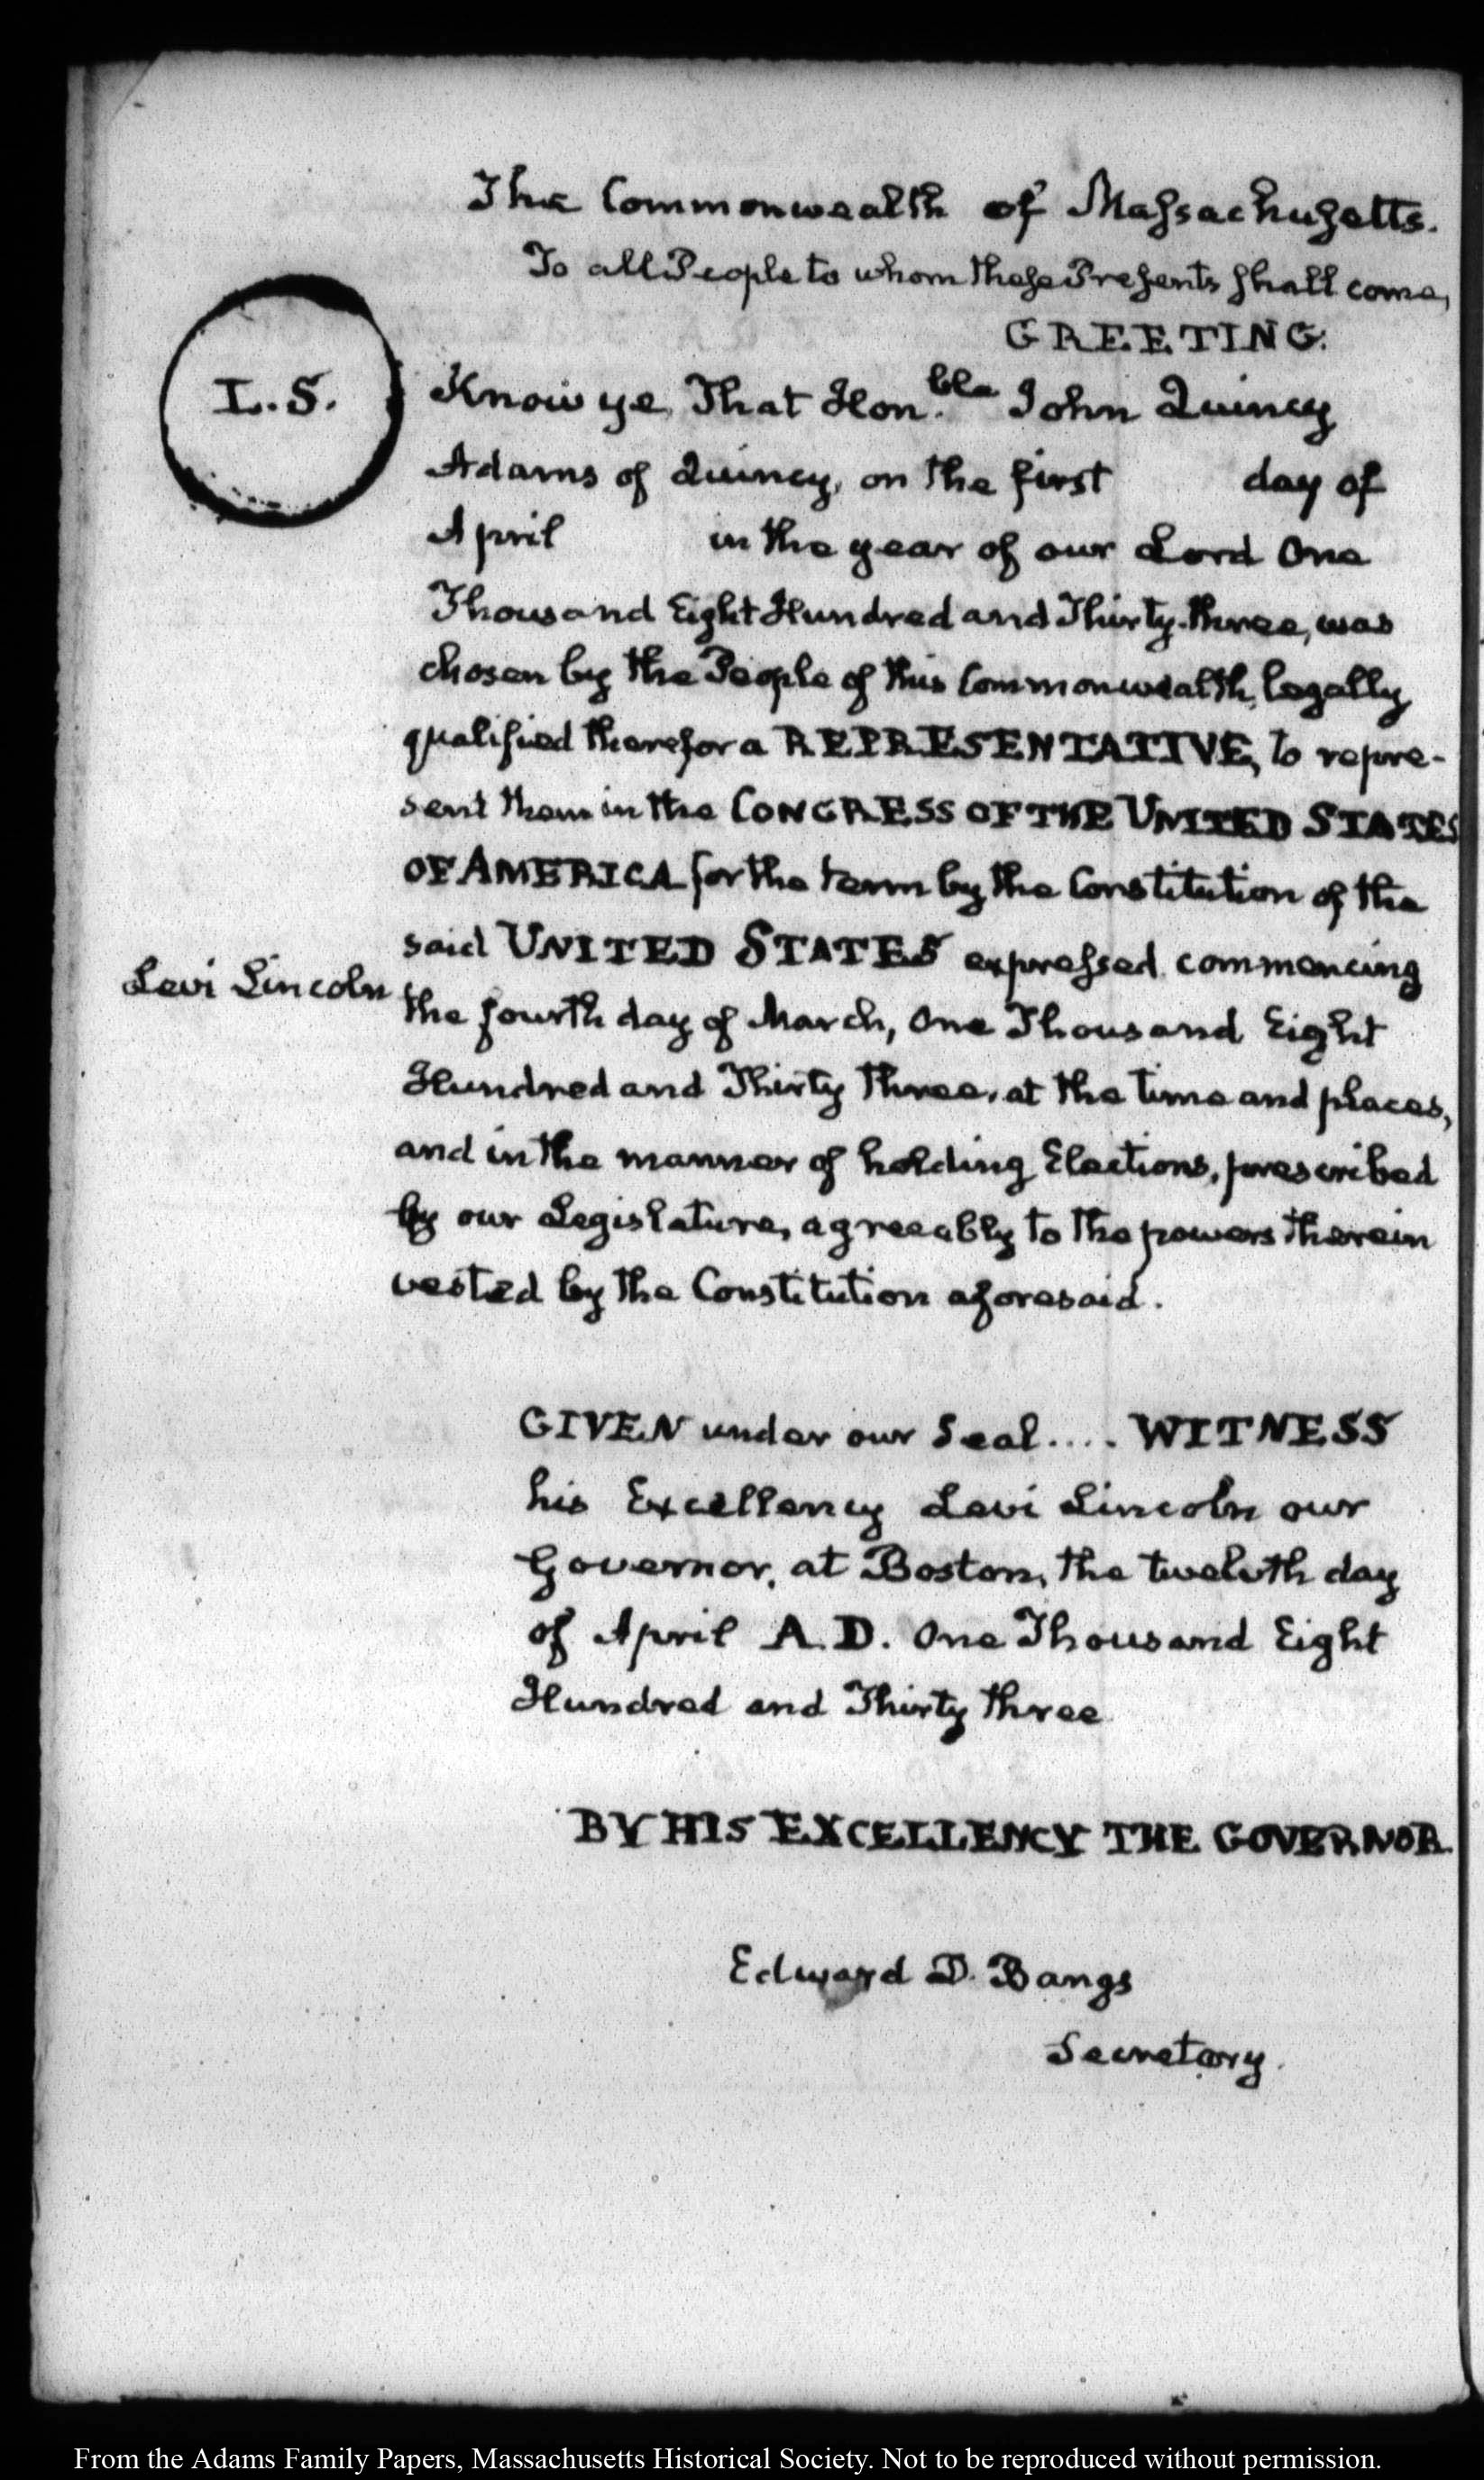 The Commonwealth of Massachusetts.
To all People to whom these Presents shall come,
GREETING:
L.S.
Know ye, That Hon.ble John Quincy
Adams of Quincy, on the first day of
April in the year of our Lord One
Thousand Eight Hundred and Thirty-three, was
chosen by the People of this Commonwealth, legally
qualified therefor a REPRESENTATIVE, to repre-
sent them in the CONGRESS OF THE UNITED STATES
OF AMERICA for the term by the Constitution of the
said UNITED STATES expressed commencing
Levi Lincoln
the fourth day of March, One Thousand Eight
Hundred and Thirty Three, at the time and places,
and in the manner of holding Elections, prescribed
by our Legislature, agreeably to the powers therein
vested by the Constitution aforesaid.
GIVEN under our Seal.... WITNESS
his Excellency Levi Lincoln our
Governor, at Boston, the twelvth day
of April A.D. One Thousand Eight
Hundred and Thirty three
BY HIS EXCELLENCY THE GOVERNOR.
Edward D. Bangs
Secretary.
From the Adams Family Papers, Massachusetts Historical Society. Not to be reproduced without permission.